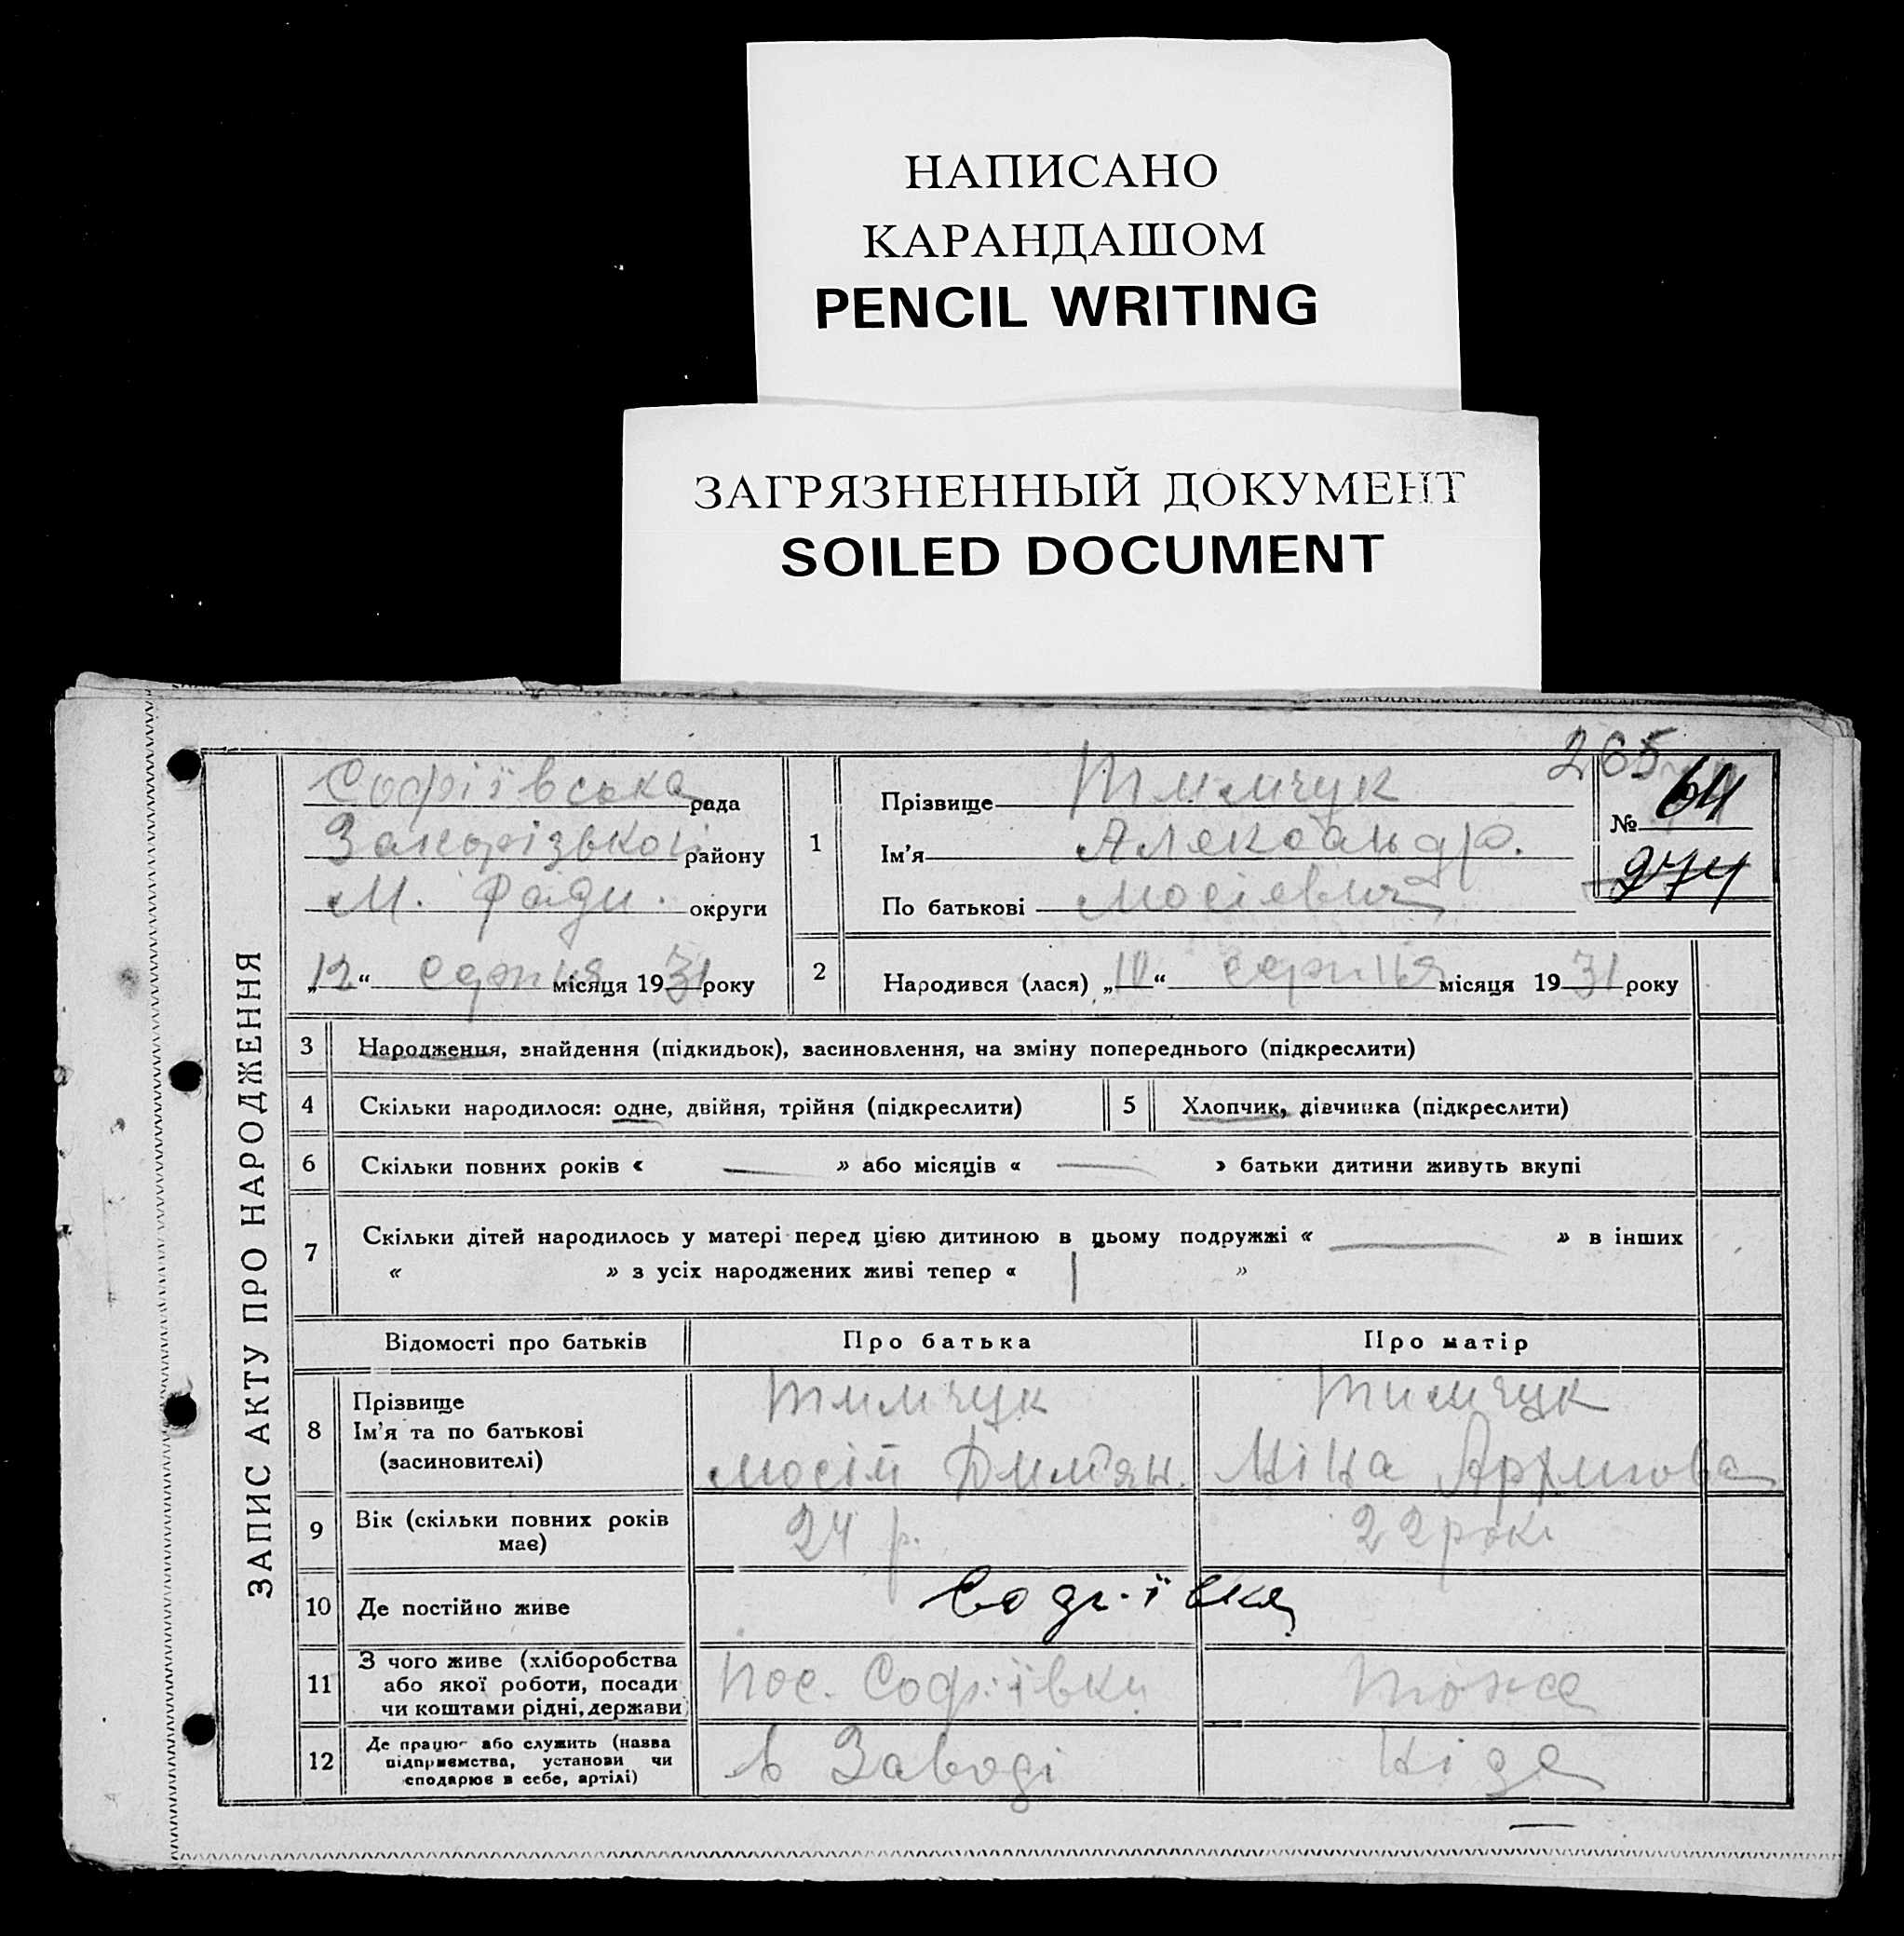 НАПИСАНО
КАРАНДАШОМ
PENCIL WRITING
ЗАГРЯЗНЕННЫЙ ДОКУМЕНТ
SOILED DOCUMENT
265
ЗАПИС АКТУ ПРО НАРОДЖЕННЯ
Софіївська рада
Запорізького району
М. Ради. округи
„12“ серпня місяця 1931 року
1 Прізвище Тимчук
Ім'я Александр.
По батькові Мосієвич
№ 64
274
2 Народився (лася) „10“ серпня місяця 1931 року
3 Народження, знайдення (підкидьок), засиновлення, на зміну попереднього (підкреслити)
4 Скільки народилося: одне, двійня, трійня (підкреслити)
5 Хлопчик, дівчинка (підкреслити)
6 Скільки повних років « — » або місяців « — » батьки дитини живуть вкупі
7 Скільки дітей народилось у матері перед цією дитиною в цьому подружжі « — » в інших
« » з усіх народжених живі тепер « | »
Відомості про батьків Про батька Про матір
8 Прізвище
Ім'я та по батькові
(засиновителі)
Тимчук
Мосій Дим'ян.
Тимчук
Ніна
9 Вік (скільки повних років
має)
24 р.
22 рок.
10 Де постійно живе
Софіївка
11 З чого живе (хліборобства
або якої роботи, посади
чи коштами рідні, держави
Пос. Софіївки
тоже
12 Де працює або служить (назва
підприємства, установи чи
сподарює в себе, артілі)
в Заводі
Ніде